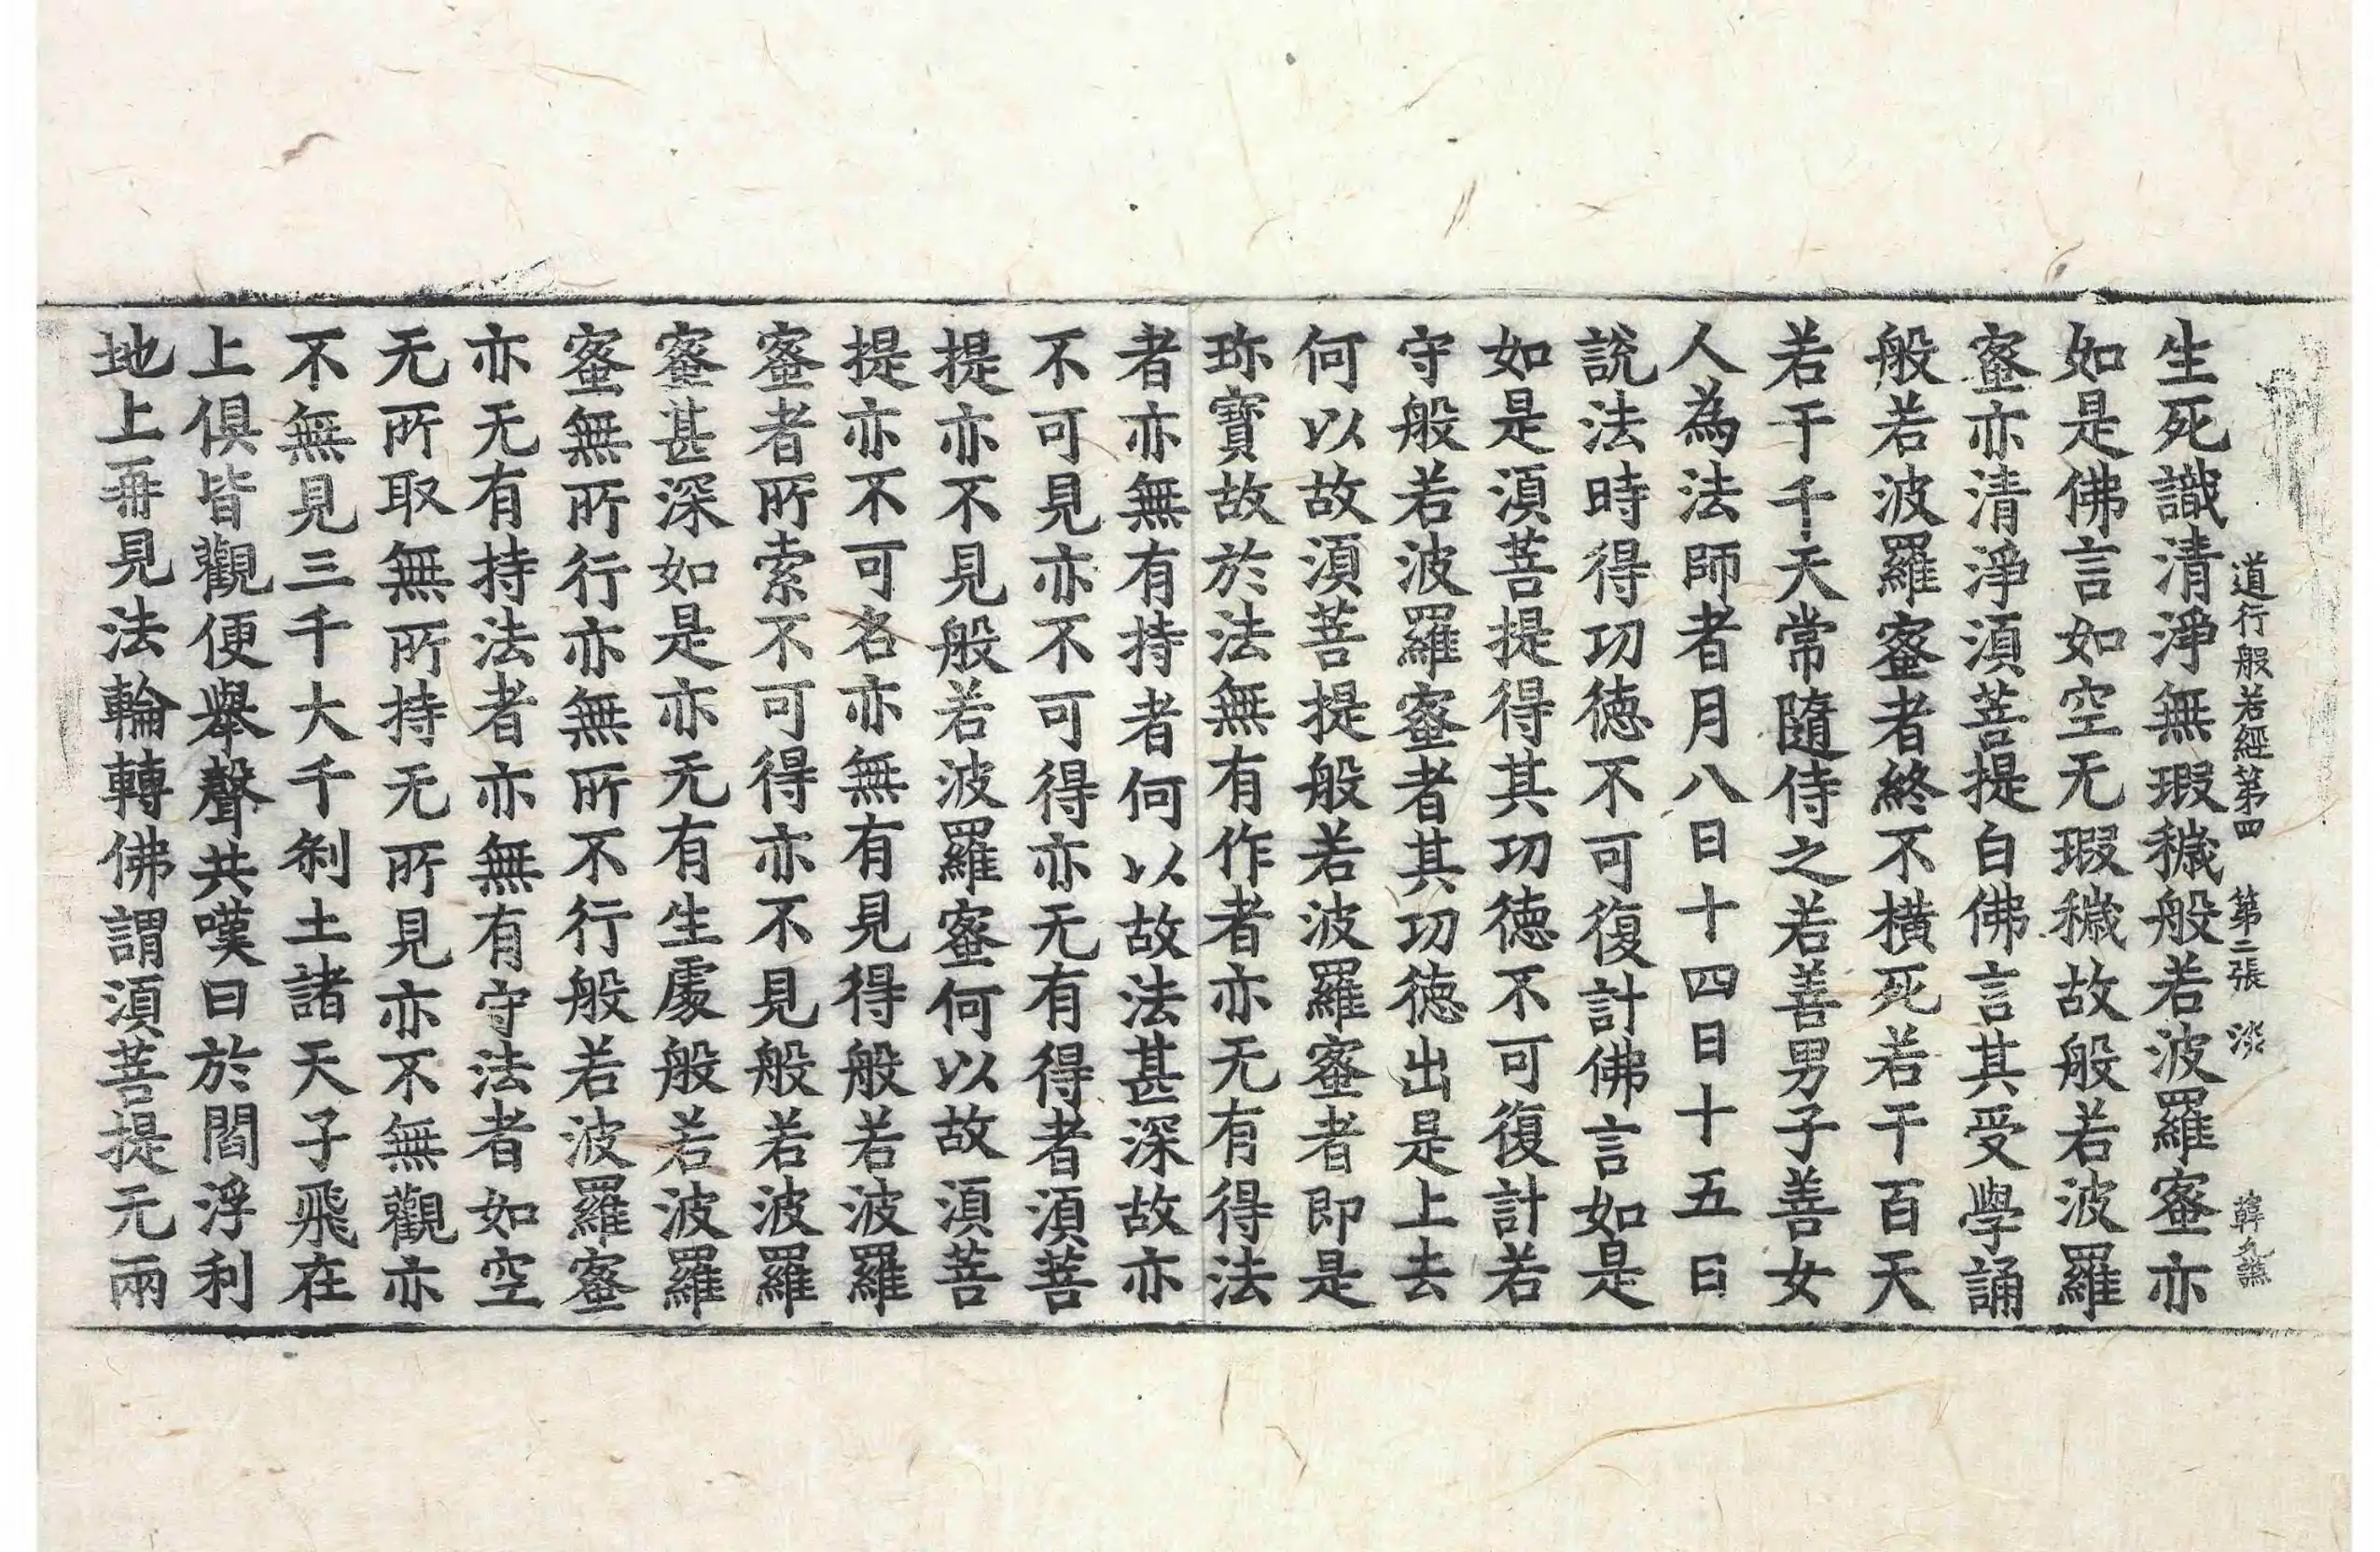 道行般若經第四 第二張 淡 韓
生死識清淨無瑕穢般若波羅蜜亦
如是佛言如空无瑕穢故般若波羅
蜜亦清淨湏菩提白佛言其受學誦
般若波羅蜜者終不橫死若干百天
若干千天常隨侍之若善男子善女
人為法師者月八日十四日十五日
說法時得功徳不可復計佛言如是
如是湏菩提得其功徳不可復計若
守般若波羅蜜者其功徳出是上去
何以故湏菩提般若波羅蜜者即是
珎寶故於法無有作者亦无有得法
者亦無有持者何以故法甚深故亦
不可見亦不可得亦无有得者湏菩
提亦不見般若波羅蜜何以故湏菩
提亦不可名亦無有見得般若波羅
蜜者所索不可得亦不見般若波羅
蜜甚深如是亦无有生處般若波羅
蜜無所行亦無所不行般若波羅蜜
亦无有持法者亦無有守法者如空
无所取無所持无所見亦不無觀亦
不無見三千大千剎土諸天子飛在
上俱皆觀便舉聲共嘆曰於閻浮利
地上再見法輪轉佛謂湏菩提无兩